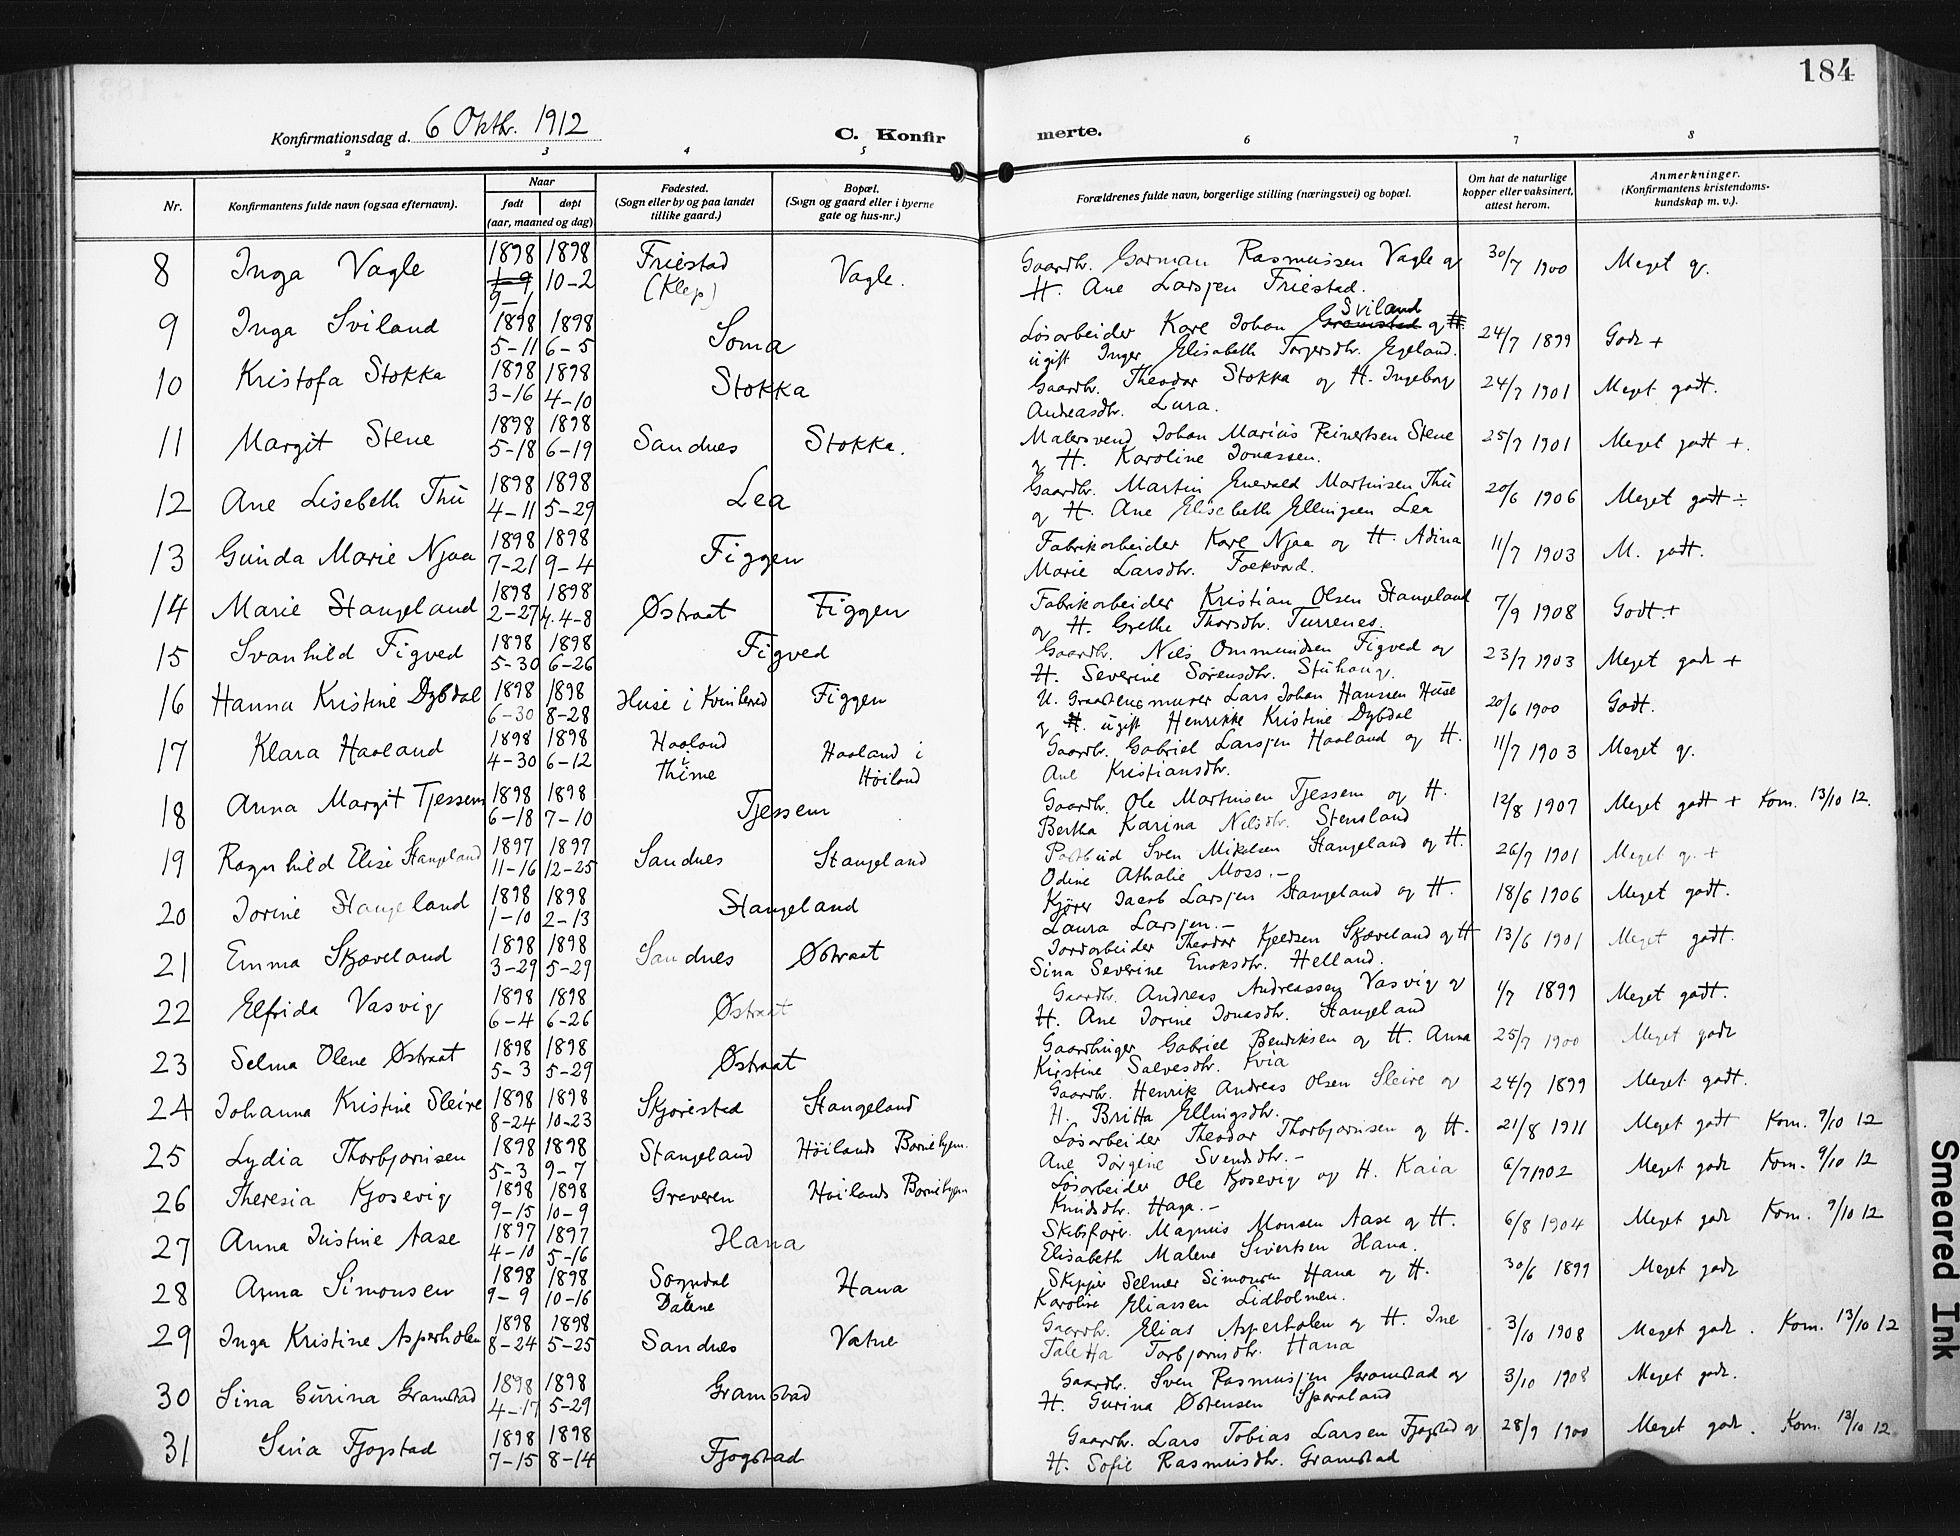 184
Konfirmationsdag d. 6 Oktbr. 1912
C. Konfirmerte.
2 3 4 5 6 7 8
Nr. | Konfirmantens fulde navn (ogsaa efternavn). | Naar født døpt (aar, maaned og dag) | Fødested. (Sogn eller by og paa landet tillike gaard.) | Bopæl. (Sogn og gaard eller i byerne gate og hus-nr.) | Forældrenes fulde navn, borgerlige stilling (næringsvei) og bopæl. | Om hat de naturlige kopper eller vaksinert, attest herom. | Anmerkninger. (Konfirmantens kristendoms-kundskap m. v.).
8 Inga Vagle 1898 1-9 9-1 1898 10-2 Friestad (Klep) Vagle. Gaardbr. Gorman Rasmussen Vagle og H. Ane Larsjen Friestad. 30/7 1900 Meget g.
9 Inga Sviland 1898 5-11 1898 6-5 Soma Løsarbeider Karl Johan Gramstad Sviland og H. ugift Inger Elisabeth Torgersdtr. Egeland. 24/7 1899 Godt +
10 Kristofa Stokka 1898 3-16 1898 4-10 Stokka Gaardbr. Theodor Stokka og H. Ingeborg Andreasdtr. Lura. 24/7 1901 Meget godt.
11 Margit Stene 1898 5-18 1898 6-19 Sandnes Stokka. Malersvend Johan Marius Reinertsen Stene og H. Karoline Jonassen. 25/7 1901 Meget godt +.
12 Ane Lisebeth Thu 1898 4-11 1898 5-29 Lea Gaardbr. Martin Enevald Martinsen Thu og H. Ane Elisebeth Ellingsen Lea 20/6 1906 Meget godt ÷
13 Gunda Marie Njaa 1898 7-21 1898 9-4 Figgen Fabrikarbeider Karl Njaa og H. Adina Marie Larsdtr. Foekvard. 11/7 1903 M. godt.
14 Marie Stangeland 1898 2-27 1898 4-8 Østraat Figgen Fabrikarbeider Kristian Olsen Stangeland og H. Grethe Thorsdtr. Turrenes. 7/9 1908 Godt.+
15 Svanhild Figved 1898 5-30 1898 6-26 Figved Gaardbr. Nils Ommundsen Figved og H. Severine Sørensdtr. Stuhaug. 23/7 1903 Meget godt +
16 Hanna Kristine Dybdal 1898 6-30 1898 8-28 Huse i Kvinherred Figgen U. Graastensmurer Lars Johan Hanssen Huse og H. ugift Henrikke Kristine Dybdal 20/6 1900 Godt.
17 Klara Haaland 1898 4-30 1898 6-12 Haaland i Thime Haaland i Høiland Gaardbr. Gabriel Larsjen Haaland og H. Ane Kristiansdtr. 11/7 1903 Meget g.
18 Anna Margit Tjessem 1898 6-18 1898 7-10 Tjessem Gaardbr. Ole Martinsen Tjessem og H. Bertha Karina Nilsdtr. Stensland 12/8 1907 Meget godt + Kom. 13/10 12.
19 Ragnhild Elise Stangeland 1897 11-16 1897 12-25 Sandnes Stangeland Postbud Sven Mikelsen Stangeland og H. Odine Athalie Moss.- 26/7 1901 Meget g. +
20 Jorine Stangeland 1898 1-10 1898 2-13 Stangeland Kjører Jacob Larsjen Stangeland og H. Laura Larsjen.- 18/6 1906 Meget godt.
21 Emma Skjæveland 1898 3-29 1898 5-29 Sandnes Østraat Jordarbeider Theodor Kjeldsen Skjæveland og H Sina Severine Enoksdtr. Helland. 13/6 1901 Meget godt.
22 Elfrida Vasvig 1898 6-4 1898 6-26 Østraat Gaardbr. Andreas Andreassen Vasvig og H. Ane Jorine Jonasdtr. Stangeland 1/7 1899 Meget godt.
23 Selma Olene Østraat 1898 5-3 1898 5-29 Østraat Gaardbruger Gabriel Bendiksen og H. Anna Kirstine Salvesdtr. Kvia 25/7 1900 Meget godt
24 Johanna Kristine Sleire 1898 8-24 1898 10-23 Skjørestad Stangeland Gaardbr. Henrik Andreas Olsen Sleire og H. Britta Ellingsdtr. 24/7 1899 Meget godt.
25 Lydia Thorbjornsen 1898 5-3 1898 9-7 Stangeland Høilands Bornehjem. Løsarbeider Theodor Thorbjornsen og H. Ane Jorgine Svendsdtr.- 21/8 1911 Meget godt Kom. 9/10 12
26 Theresia Kjosevig 1898 9-15 1898 10-9 Graveren Høilands Bornehjem Løsarbeider Ole Kjosevig og H. Kaia Knudsdtr. Haga.- 6/7 1902 Meget godt Kom. 9/10 12
27 Anna Justine Aase 1897 4-10 1897 5-16 Hana Skibsfører Magnus Monsen Aase og H. Elisabeth Malene Sivertsen Hana. 6/8 1904 Meget godt Kom. 9/10 12
28 Anna Simonsen 1898 9-9 1898 10-16 Sogndal i Dalene Hana Skipper Selmer Simonsen Hana og H. Karoline Eliassen Lidbolmen. 30/6 1899 Meget godt
29 Inga Kristine Asperholen 1898 8-24 1898 5-25 Sandnes Vatne Gaardbr. Elias Asperholen og H. Ine Taletta Torbjornsdtr. Hana 3/10 1908 Meget godt. Kom. 13/10 12
30 Sina Gurina Gramstad 1898 4-17 1898 5-29 Gramstad Gaardbr. Sven Rasmusjen Gramstad og H. Gurina Østensen Sporaland 3/10 1908 Meget godt.
31 Sina Fjogstad 1898 7-15 1898 8-14 Fjogstad Gaardbr. Lars Tobias Larsen Fjogstad og H. Sofie Rasmusdtr. Gramstad 28/9 1900 Meget godt. Kom. 13/10 12.
Smeared Ink